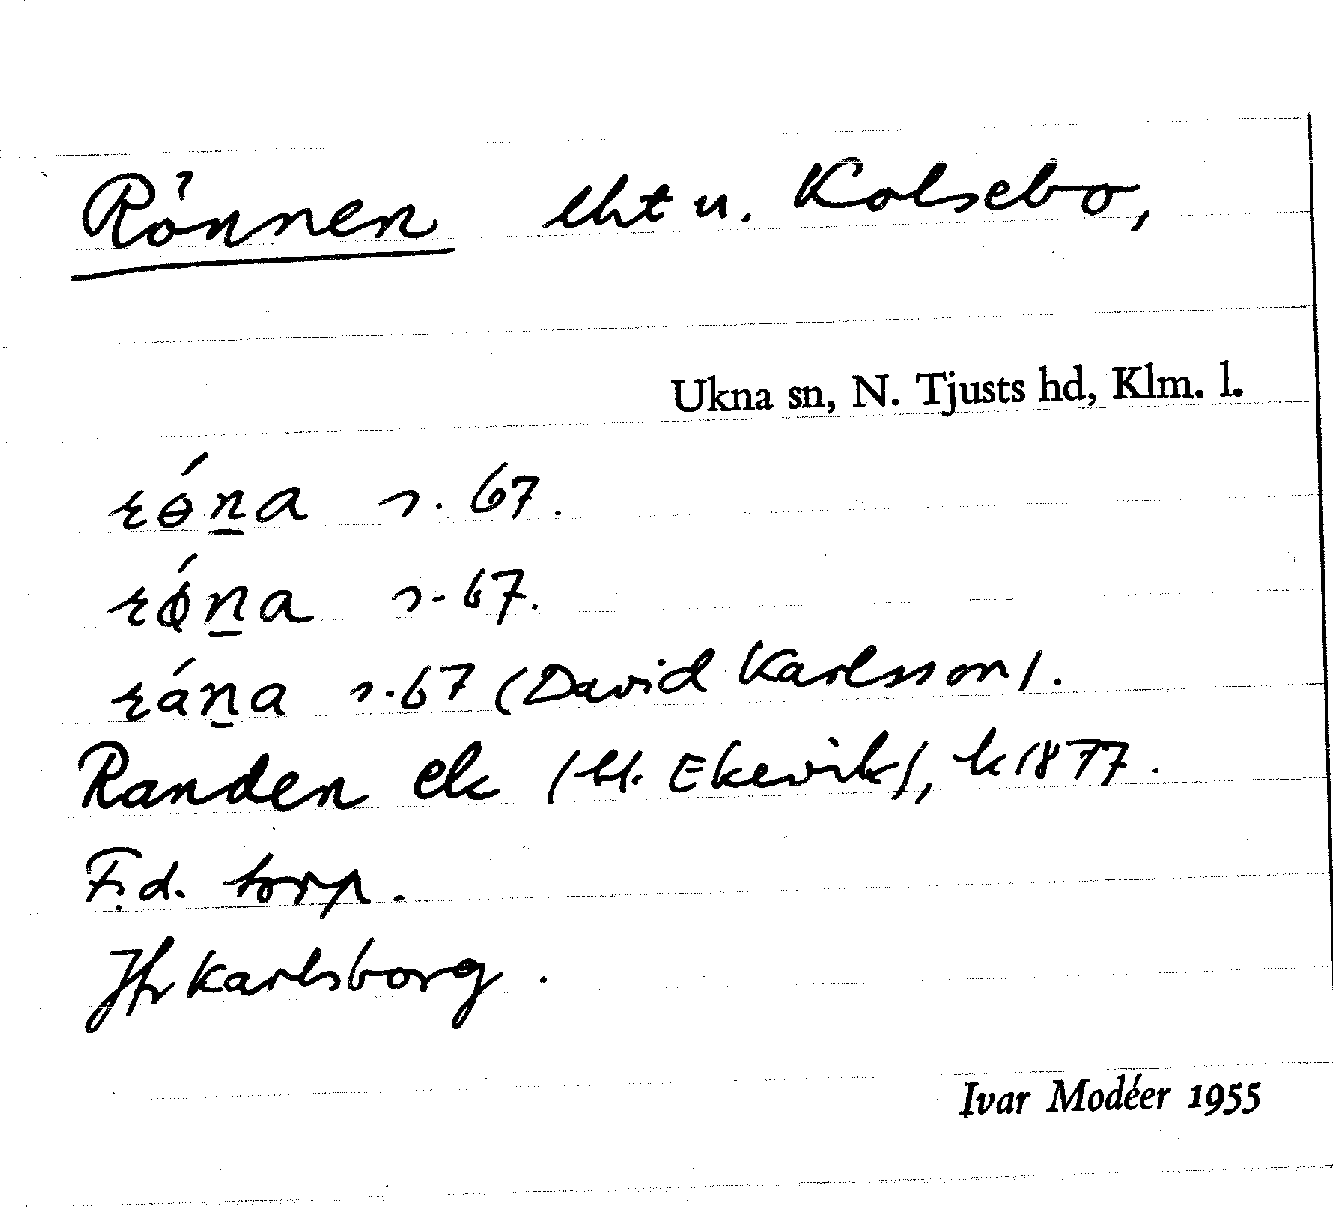 Rönnen lht u. Kolsebo,
Ukna sn, N. Tjusts hd, Klm. l.
rɵ́n̲a s. 67.
rǿn̲a s. 67.
rán̲a s. 67 (David Karlsson).
Randen ek (bl. Ekevik), k 1877.
F.d. torp.
Jfr Karlsborg.
Ivar Modéer 1955